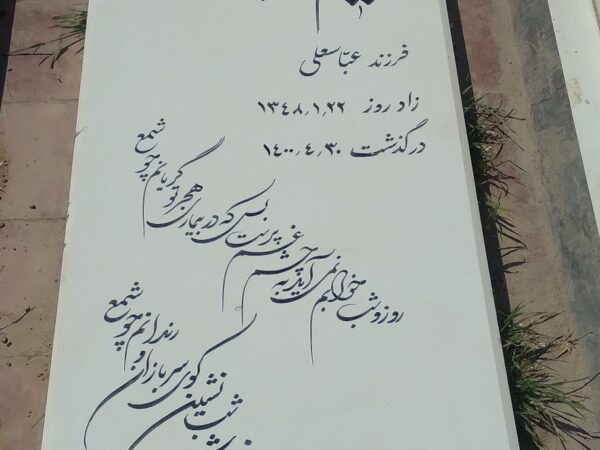 فرزند عباسعلی
زاد روز ۱۳۴۸٫۱٫۲۲
درگذشت ۱۴۰۰٫۴٫۳۰
روز و شب خوابم نمی آید به چشم غم پرست
بس که در بیماری هجر تو گریانم چو شمع
شب نشین کوی سربازان و رندانم چو شمع